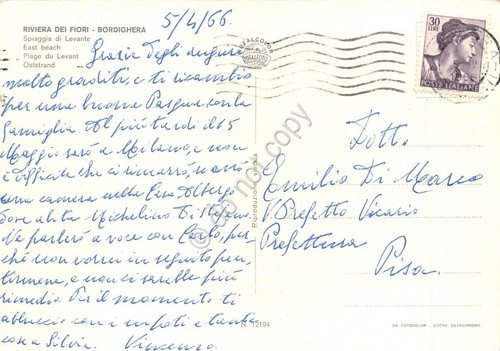 5/4/66.
RIVIERA DEI FIORI - BORDIGHERA
Spiaggia di Levante
East beach
Plage du Levant
Oststrand
Grazie degli auguri
molto graditi, e ti ricambio
per una buona Pasqua con la
famiglia. Al più tardi il 15
Maggio sarò a Milano, e non
è difficile che ci rimarrò, se avrò
una camera nella Casa Albergo
dove abita Michelino Di Stefano.
Ne parlerò a voce con Carlo, per-
chè non vorrei in seguito pen-
tirmene, e non ci sarebbe più
rimedio. Per il momento ti
abbraccio con i nipoti e tante
cose a Silvia. Vincenzo
Riproduzione vietata
N. 12194
30
LIRE
POSTE ITALIANE
Dott.
Emilio Di Marco
V. Prefetto Vicario
Prefettura
Pisa.
DA FOTOCOLOR KODAK EKTACHROME
do not copy